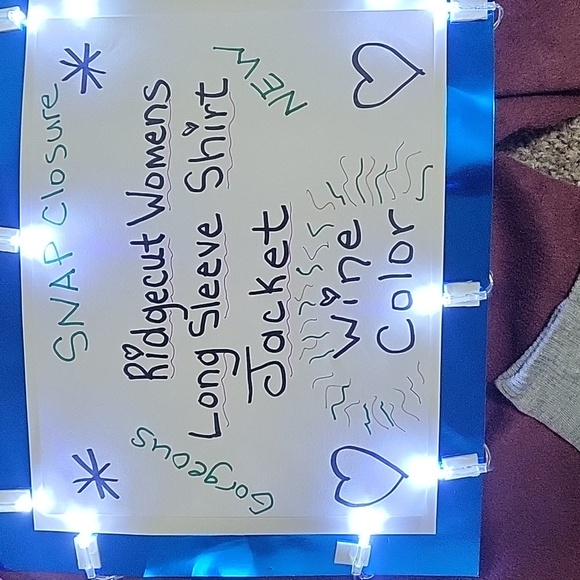 SNAP Closure
Ridgecut Womens
Long Sleeve Shirt
Jacket
NEW
Gorgeous
Wine
Color